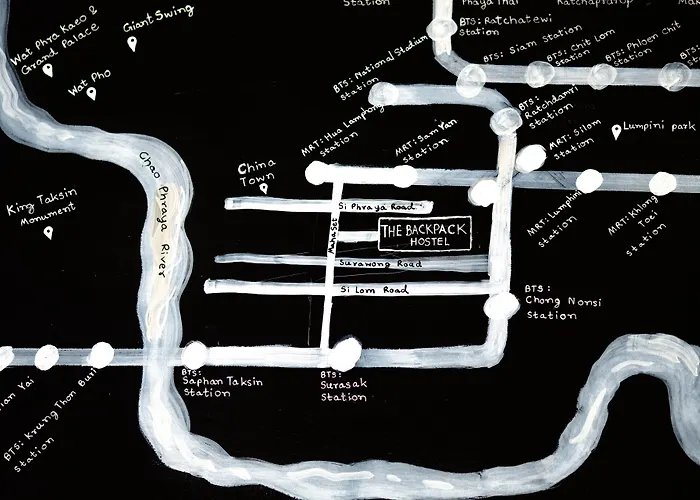 Station
Phaya Thai
Ratchaprarop
Wat Phra Kaeo &
Grand Palace
Giant Swing
BTS: Ratchatewi
Station
Wat Pho
BTS: National Stadium
Station
BTS: Siam Station
BTS: Chit Lom
Station
BTS: Phloen Chit
Station
BTS:
Ratchdamri
Station
MRT: Hua Lamphong
Station
MRT: Sam Yan
Station
MRT: Silom
Station
Lumpini park
China
Town
Chao Phraya River
King Taksin
Monument
Si Phraya Road
Mahaset
THE BACKPACK
HOSTEL
Surawong Road
Si Lom Road
MRT: Lumphini
Station
MRT: Khlong
Toei
Station
BTS:
Chong Nonsi
Station
BTS:
Saphan Taksin
Station
BTS:
Surasak
Station
Yai
BTS: Krung Thon Buri
Station